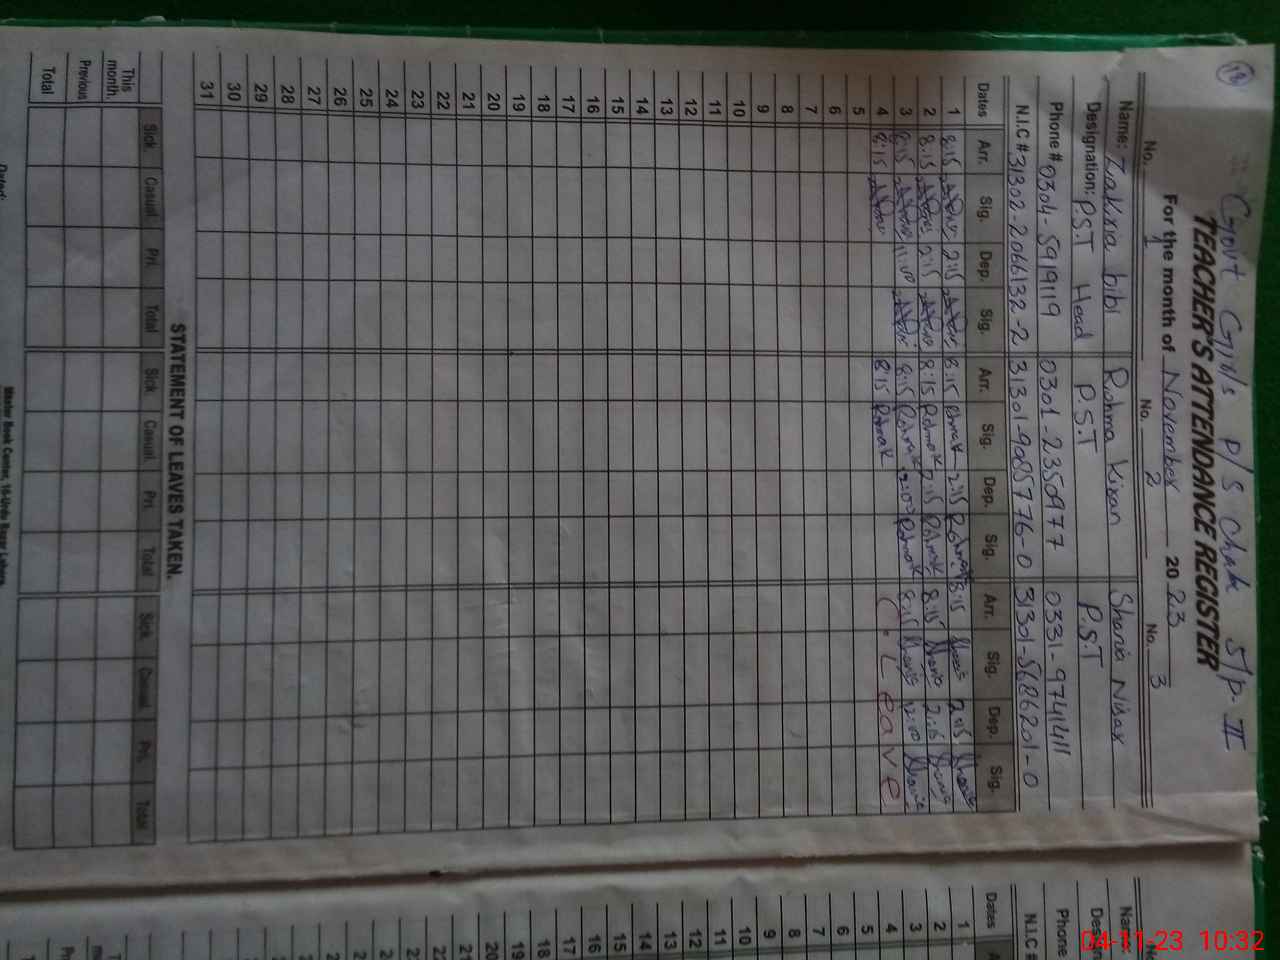 18
Govt Girls P/S Chak 5/P. II
TEACHER'S ATTENDANCE REGISTER
For the month of November 2023
No. 1 No. 2 No. 3
Name: Zakxia bibi Rohma Kixan Shania Nisax
Designation: P.S.T Head P.S.T P.S.T
Phone # 0304-5919119 0301-2350977 0331-9741411
N.I.C # 31302-2066132-2 31301-9085776-0 31301-5686201-0
Dates Arr. Sig. Dep. Sig. Arr. Sig. Dep. Sig. Arr. Sig. Dep. Sig.
1 8:15 2:15 8:15 Rohmak 2:15 Rohmak 8:15 Shania 2:15 Shania
2 8:15 2:15 8:15 Rohmak 2:15 Rohmak 8:15 Shania 2:15 Shania
3 8:15 11:00 8:15 Rohmak 12:00 Rohmak 8:15 Shania 12:00 Shania
4 8:15 8:15 Rohmak C. Leave
5
6
7
8
9
10
11
12
13
14
15
16
17
18
19
20
21
22
23
24
25
26
27
28
29
30
31
STATEMENT OF LEAVES TAKEN.
Sick Casual Pri. Total Sick Casual Pri. Total Sick Casual Pri. Total
This month.
Previous
Total
Dated:
Master Book Center, 16-Urdu Bazar Lahore
No
Name:
Phone
N.I.C #
Dates
1
2
3
4
5
6
7
8
9
10
11
12
13
14
15
16
17
18
19
20
21
22
04-11-23 10:32